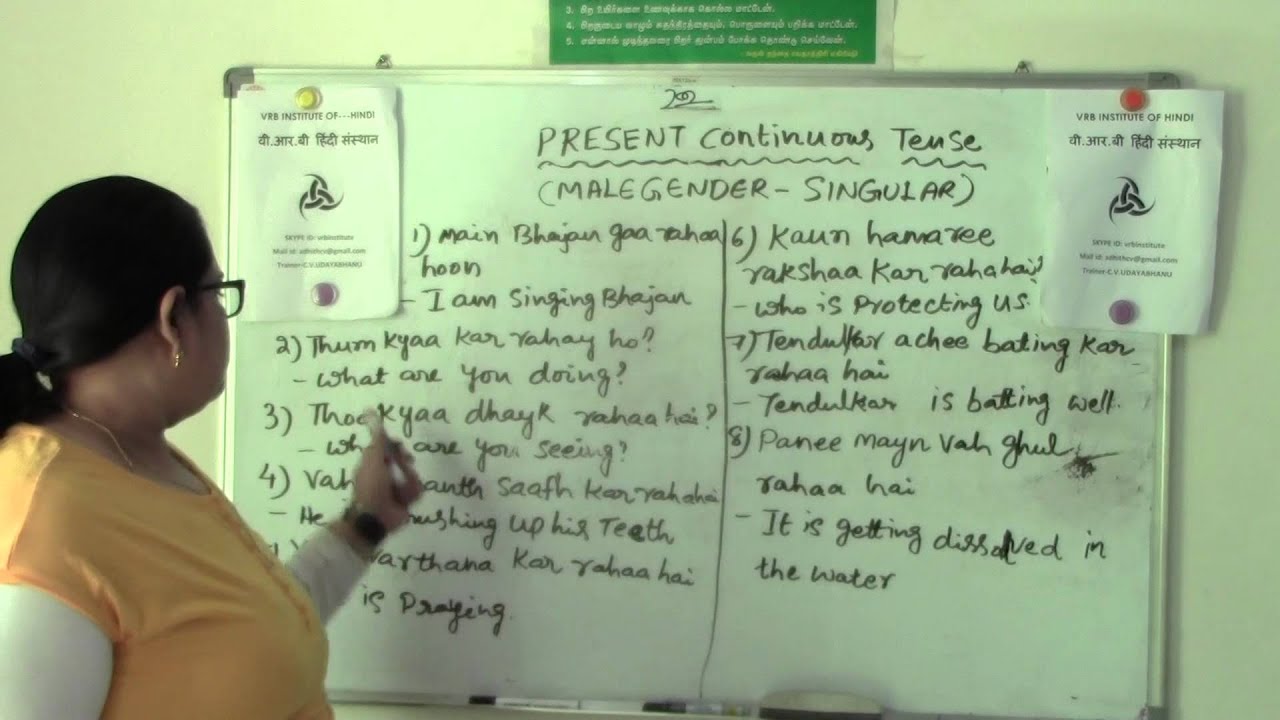 3. பிற உயிர்களை உணவுக்காக கொல்ல மாட்டேன்.
4. பிறருடைய வாழும் சுதந்திரத்தையும், பொருளையும் பறிக்க மாட்டேன்.
5. என்னால் முடிந்தவரை பிறர் துன்பம் போக்க தொண்டு செய்வேன்.
VRB INSTITUTE OF---HINDI
वी.आर.बी हिंदी संस्थान
SKYPE ID: vrbinstitute
Mail id: adhithcv@gmail.com
Trainer-C.V.UDAYABHANU
PRESENT Continuous Tense
(MALE GENDER - SINGULAR)
1) Main Bhajan gaa rahaa
hoon
- I am Singing Bhajan
2) Thum kyaa kar rahay ho?
- What are you doing?
3) Thoo kyaa dhayk rahaa hai?
- are you seeing?
4) Vah saafh kar raha hai
- He up his Teeth
kar rahaa hai
is Praying.
6) Kaun hamaree
rakshaa kar raha hai?
- Who is Protecting us.
7) Tendulkar achee bating kar
rahaa hai
- Tendulkar is batting well.
8) Panee mayn vah ghul
rahaa hai
- It is getting dissolved in
the water
VRB INSTITUTE OF HINDI
वी.आर.बी हिंदी संस्थान
SKYPE ID: vrbinstitute
Mail id: adhithcv@gmail.com
Trainer-C.V.UDAYABHANU